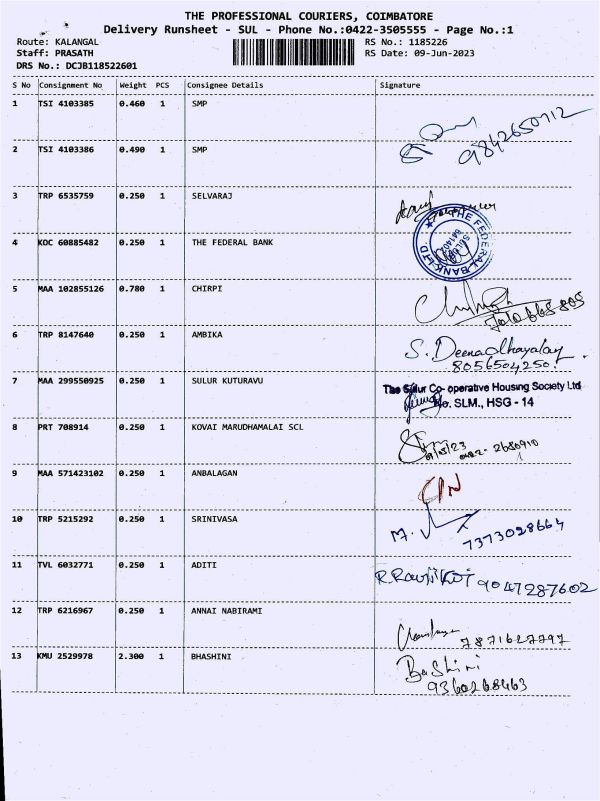 THE PROFESSIONAL COURIERS, COIMBATORE
Delivery Runsheet - SUL - Phone No.:0422-3505555 - Page No.:1
Route: KALANGAL RS No.: 1185226
Staff: PRASATH RS Date: 09-Jun-2023
DRS No.: DCJB118522601
S No Consignment No Weight PCS Consignee Details Signature
1 TSI 4103385 0.460 1 SMP
9842650712
2 TSI 4103386 0.490 1 SMP
3 TRP 6535759 0.250 1 SELVARAJ
4 KOC 60885482 0.250 1 THE FEDERAL BANK
THE FEDERAL BANK LTD
SULUR
5 MAA 102855126 0.780 1 CHIRPI
6 TRP 8147640 0.250 1 AMBIKA
S. Deenadhayalan
8056504250
7 MAA 299550925 0.250 1 SULUR KUTURAVU
The Sulur Co-operative Housing Society Ltd
No. SLM., HSG - 14
8 PRT 708914 0.250 1 KOVAI MARUDHAMALAI SCL
2680910
9 MAA 571423102 0.250 1 ANBALAGAN
10 TRP 5215292 0.250 1 SRINIVASA
7373028664
11 TVL 6032771 0.250 1 ADITI
9047287602
12 TRP 6216967 0.250 1 ANNAI NABIRAMI
7871627797
13 KMU 2529978 2.300 1 BHASHINI
BaShini
9360268463